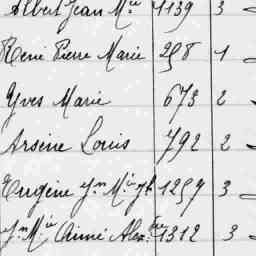 Albert Jean Mie 1139 3
René Pierre Marie 258 1
Yves Marie 673 2
Arsène Louis 792 2
Eugène Jn Mie Jh 1257 3
Jn Mie Aimé Alex.dre 1312 3